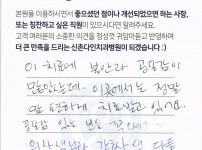 본원을 이용하시면서 좋으셨던 점이나 개선되었으면 하는 사항,
또는 칭찬하고 싶은 직원이 있으시다면 알려주세요.
고객 여러분의 소중한 의견을 정성껏 귀담아듣고 반영하여
더 큰 만족을 드리는 신촌다인치과병원이 되겠습니다 :)
이 치료에 불안과 공포감이
많았는데, 이곳에서는 정말
맘 편하게 치료받고 있거든.
꼼꼼
의사 선생님 간호사 샘 다들